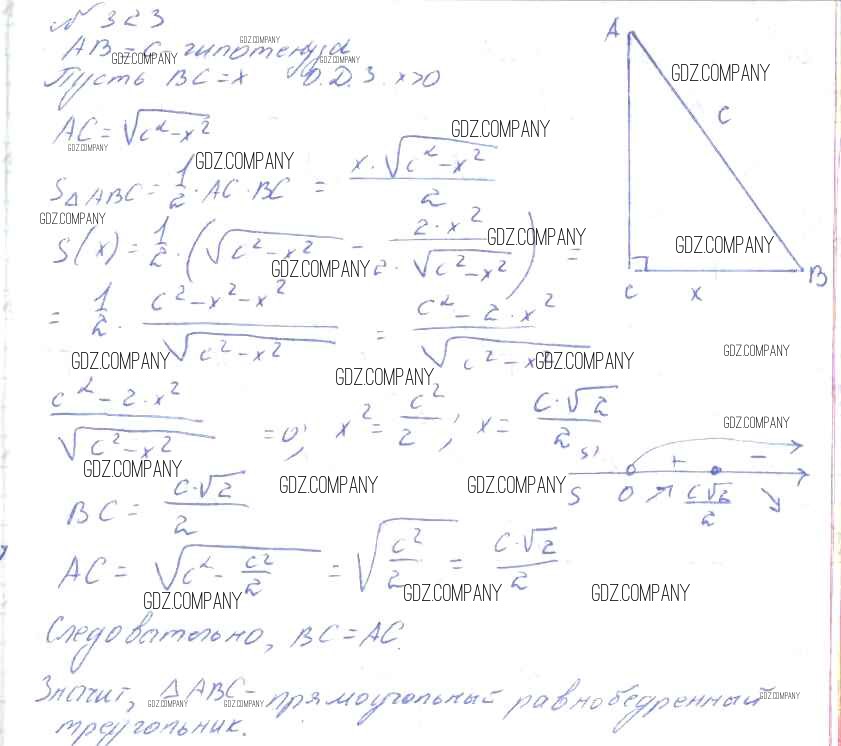 № 323
AB = c - гипотенуза
Пусть BC = x О.Д.З. x>0
AC = √(c² - x²)
S△ABC = 1/2 · AC · BC = (x · √(c² - x²))/2
S(x) = 1/2 · (√(c² - x²) - (2 · x²)/(2 · √(c² - x²))) =
= 1/2 · (c² - x² - x²)/√(c² - x²) = (c² - 2 · x²)/√(c² - x²)
(c² - 2 · x²)/√(c² - x²) = 0; x² = c²/2; x = (c · √2)/2
BC = (c · √2)/2
AC = √(c² - c²/2) = √(c²/2) = (c · √2)/2
Следовательно, BC = AC.
Значит, △ABC - прямоугольный равнобедренный
треугольник.
A
c
C
x
B
S'
+ -
S 0 ↗ (c√2)/2 ↘
GDZ.COMPANY
GDZ.COMPANY
GDZ.COMPANY
GDZ.COMPANY
GDZ.COMPANY
GDZ.COMPANY
GDZ.COMPANY
GDZ.COMPANY
GDZ.COMPANY
GDZ.COMPANY
GDZ.COMPANY
GDZ.COMPANY
GDZ.COMPANY
GDZ.COMPANY
GDZ.COMPANY
GDZ.COMPANY
GDZ.COMPANY
GDZ.COMPANY
GDZ.COMPANY
GDZ.COMPANY
GDZ.COMPANY
GDZ.COMPANY
GDZ.COMPANY
GDZ.COMPANY
GDZ.COMPANY